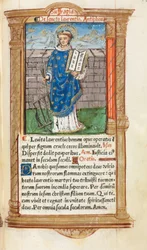 De sancto laurentio. Antiphona
Leuita laurentius bonum opus operatus est
qui per signum crucis cecos illuminauit.
Dispersit dedit pauperibus.
manet in seculum seculi. Oratio.
Da nobis quesumus omnipotens deus vitio
rum nostrorum flammas extinguere: qui
beato laurentio martyri tuo tribuisti tormen
torum suorum incendia superare. Per dominum
nostrum iesum christum filium tuum. Qui te
cum viuit et regnat in vnitate spiritussancti
deus. Per omnia secula seculorum. Amen.